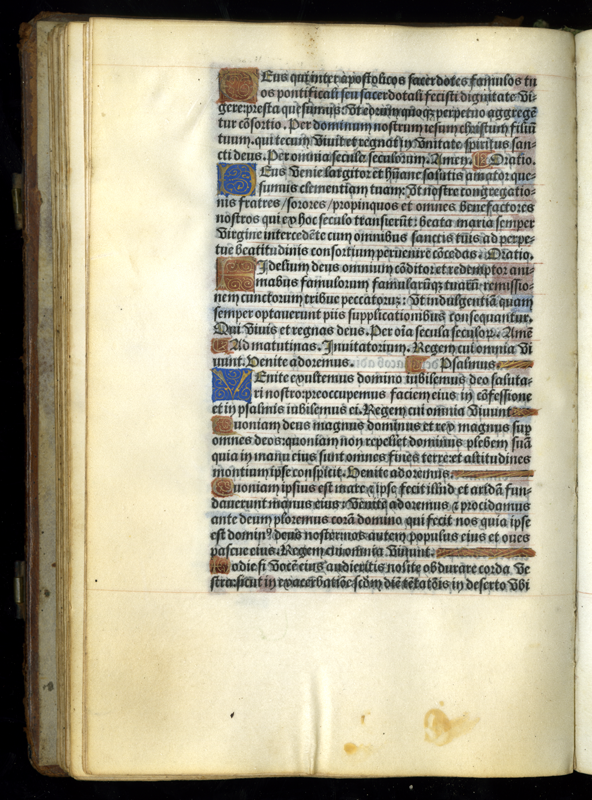 Deus qui inter apostolicos sacerdotes famulos tu
os pontificali seu sacerdotali fecisti dignitate Vi-
gere: presta quesumus: Vt eorum quoq̧ perpetuo aggregē
tur cōsortio. Per dominum nostrum iesum christum filiū
tuum. qui tecum Viuit et regnat in Vnitate spiritus san-
cti deus. Per omnia secula seculorum. Amen. Oratio.
Deus Venie largitor et hūane salutis amator que-
sumus clementiam tuam: Vt nostre congregatio-
nis fratres / sorores / propinquos et omnes benefactores
nostros qui ex hoc seculo transierūt: beata maria semper
Virgine intercedēte cum omnibus sanctis tuis ad perpe-
tue beatitudinis consortium peruenire cōcedas. Oratio.
Fidelium deus omnium cōditor et redemptor ani-
mabus famulorum famularūq̧ tuarū remissio-
nem cunctorum tribue peccatorum: Vt indulgentiā quam
semper optauerunt piis supplicationibus consequantur.
Qui Viuis et regnas deus. Per oīa secula seculoꝝ. Amē
Ad matutinas. Inuitatorium. Regem cui omnia Vi
uunt. Venite adoremus. Psalmus.
Venite exultemus domino iubilemus deo saluta-
ri nostro: preoccupemus faciem eius in cōfessione
et in psalmis iubilemus ei. Regem cui omnia Viuunt
Quoniam deus magnus dominus et rex magnus sup
omnes deos: quoniam non repellet dominus plebem suā
quia in manu eius sunt omnes fines terre et altitudines
montium ipse conspicit. Venite adoremus.
Quoniam ipsius est mare ⁊ ipse fecit illud et aridā fun-
dauerunt manus eius: Venite adoremus ⁊ procidamus
ante deum ploremus corā domino qui fecit nos quia ipse
est dominꝰ deus noster: nos autem populus eius et oues
pascue eius. Regem cui omnia Viuunt.
Hodie si Vocē eius audieritis nolite obdurare corda Ve
stra: sicut in exacerbatiōe scdm̄ diē tētatōis in deserto Vbi